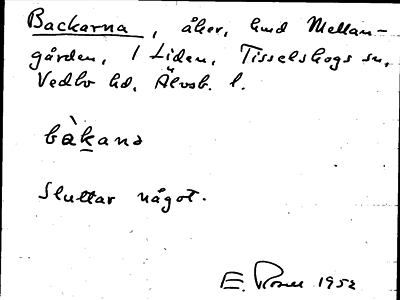 Backarna, åker, hmd Mellan-
gården, 1 Liden, Tisselskogs sn,
Vedbo hd, Älvsb. l.
bàkana
Sluttar något.
E. Rosell 1952